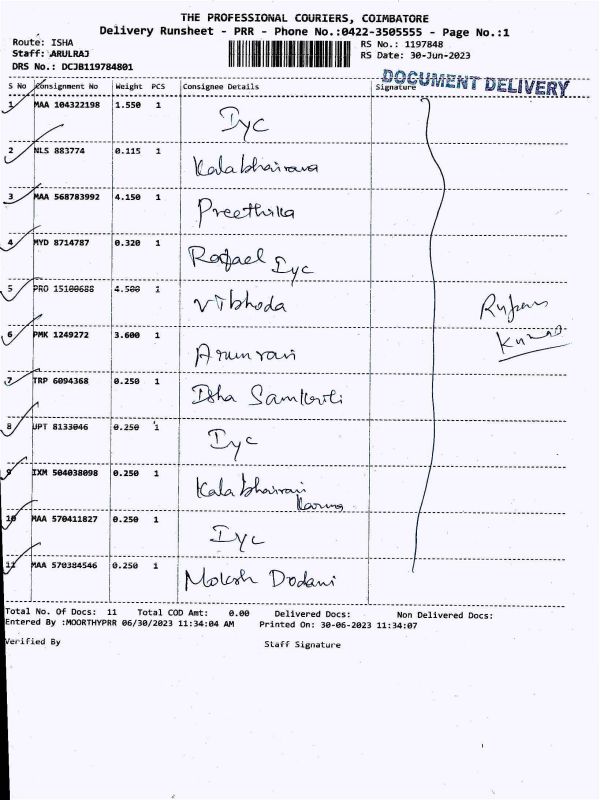 THE PROFESSIONAL COURIERS, COIMBATORE
Delivery Runsheet - PRR - Phone No.:0422-3505555 - Page No.:1
Route: ISHA
Staff: ARULRAJ
DRS No.: DCJB119784801
RS No.: 1197848
RS Date: 30-Jun-2023
DOCUMENT DELIVERY
S No Consignment No Weight PCS Consignee Details Signature
1 MAA 104322198 1.550 1 Iyc
2 NLS 883774 0.115 1 Kalabhairava
3 MAA 568783992 4.150 1 Preethika
4 MYD 8714787 0.320 1 Rafael Iyc
5 PRO 15100688 4.500 1 Vibhoda
6 PMK 1249272 3.600 1 Arunravi
7 TRP 6094368 0.250 1 Isha Samkriti
8 UPT 8133046 0.250 1 Iyc
9 IXM 504038098 0.250 1 Kalabhairavi Karma
10 MAA 570411827 0.250 1 Iyc
11 MAA 570384546 0.250 1 Moksh Dodani
Kumar
Total No. Of Docs: 11 Total COD Amt: 0.00 Delivered Docs: Non Delivered Docs:
Entered By :MOORTHYPRR 06/30/2023 11:34:04 AM Printed On: 30-06-2023 11:34:07
Verified By Staff Signature